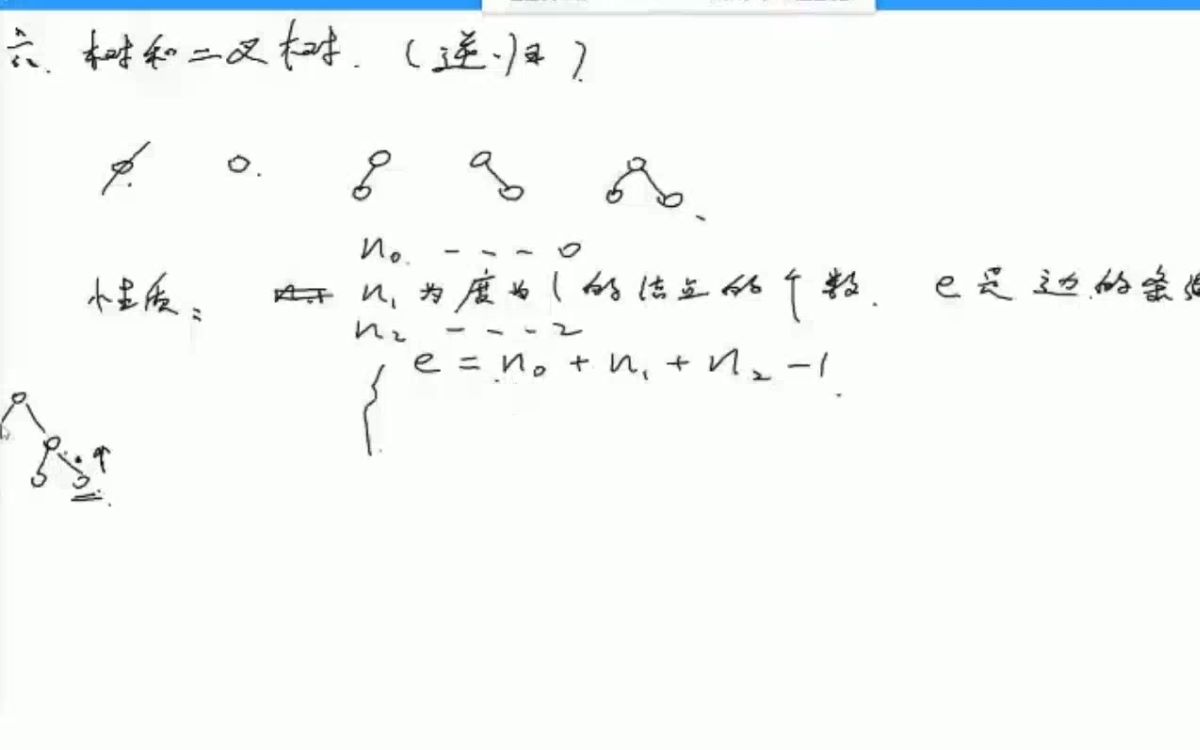 六. 树和二叉树. (递归)
∅ 0.
n₀ - - - 0
性质: n₁ 为度为1的结点的个数. e是边的条
n₂ - - - 2
e = n₀ + n₁ + n₂ - 1.